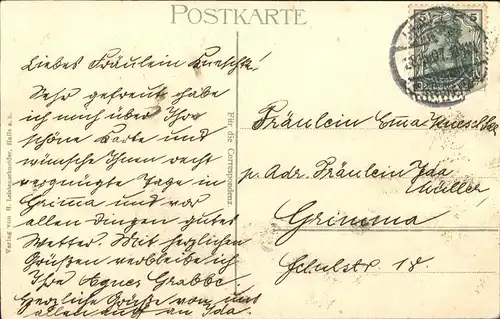 POSTKARTE
Liebes Fräulein Kueschke!
Sehr gefreut habe
ich mich über Ihre
schöne Karte und
wünsche Ihnen recht
vergnügte Tage in
Grima und vor
allen Dingen gutes
Wetter. Mit herzlichen
Grüßen verbleibe ich
Ihre Agnes Grabbe
Herzliche Grüße von uns
allen auch an Ida.
Verlag von H. Leistenschneider, Halle a. S.
Für die Correspondenz
5
Fräulein Erna Kueschke
p. Adr. Fräulein Ida
Müller
Grimma
Schulstr 18.